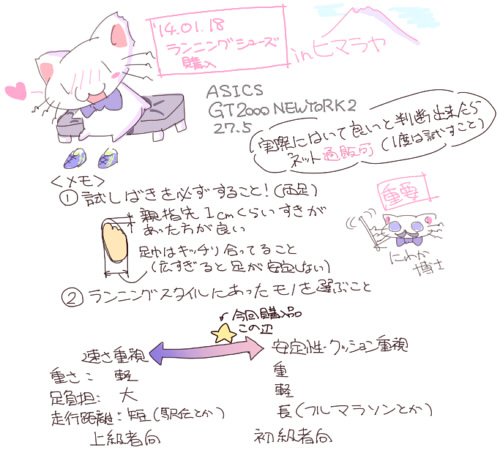 '14.01.18
ランニングシューズ
購入
inヒマラヤ
ASICS
GT2000 NEWYORK2
27.5
実際にはいて良いと判断出来たら
ネット通販可(1度は試すこと)
<メモ>
①試しばきを必ずすること!(両足)
親指先1cmくらいすきが
あった方が良い
足巾はキッチリ合ってること
(広すぎると足が安定しない)
重要
にわか
博士
②ランニングスタイルにあったモノを選ぶこと
今回購入品
この辺
速さ重視
安定性・クッション重視
重さ: 軽
重
足負担: 大
軽
走行距離: 短(駅伝とか)
長(フルマラソンとか)
上級者向
初級者向